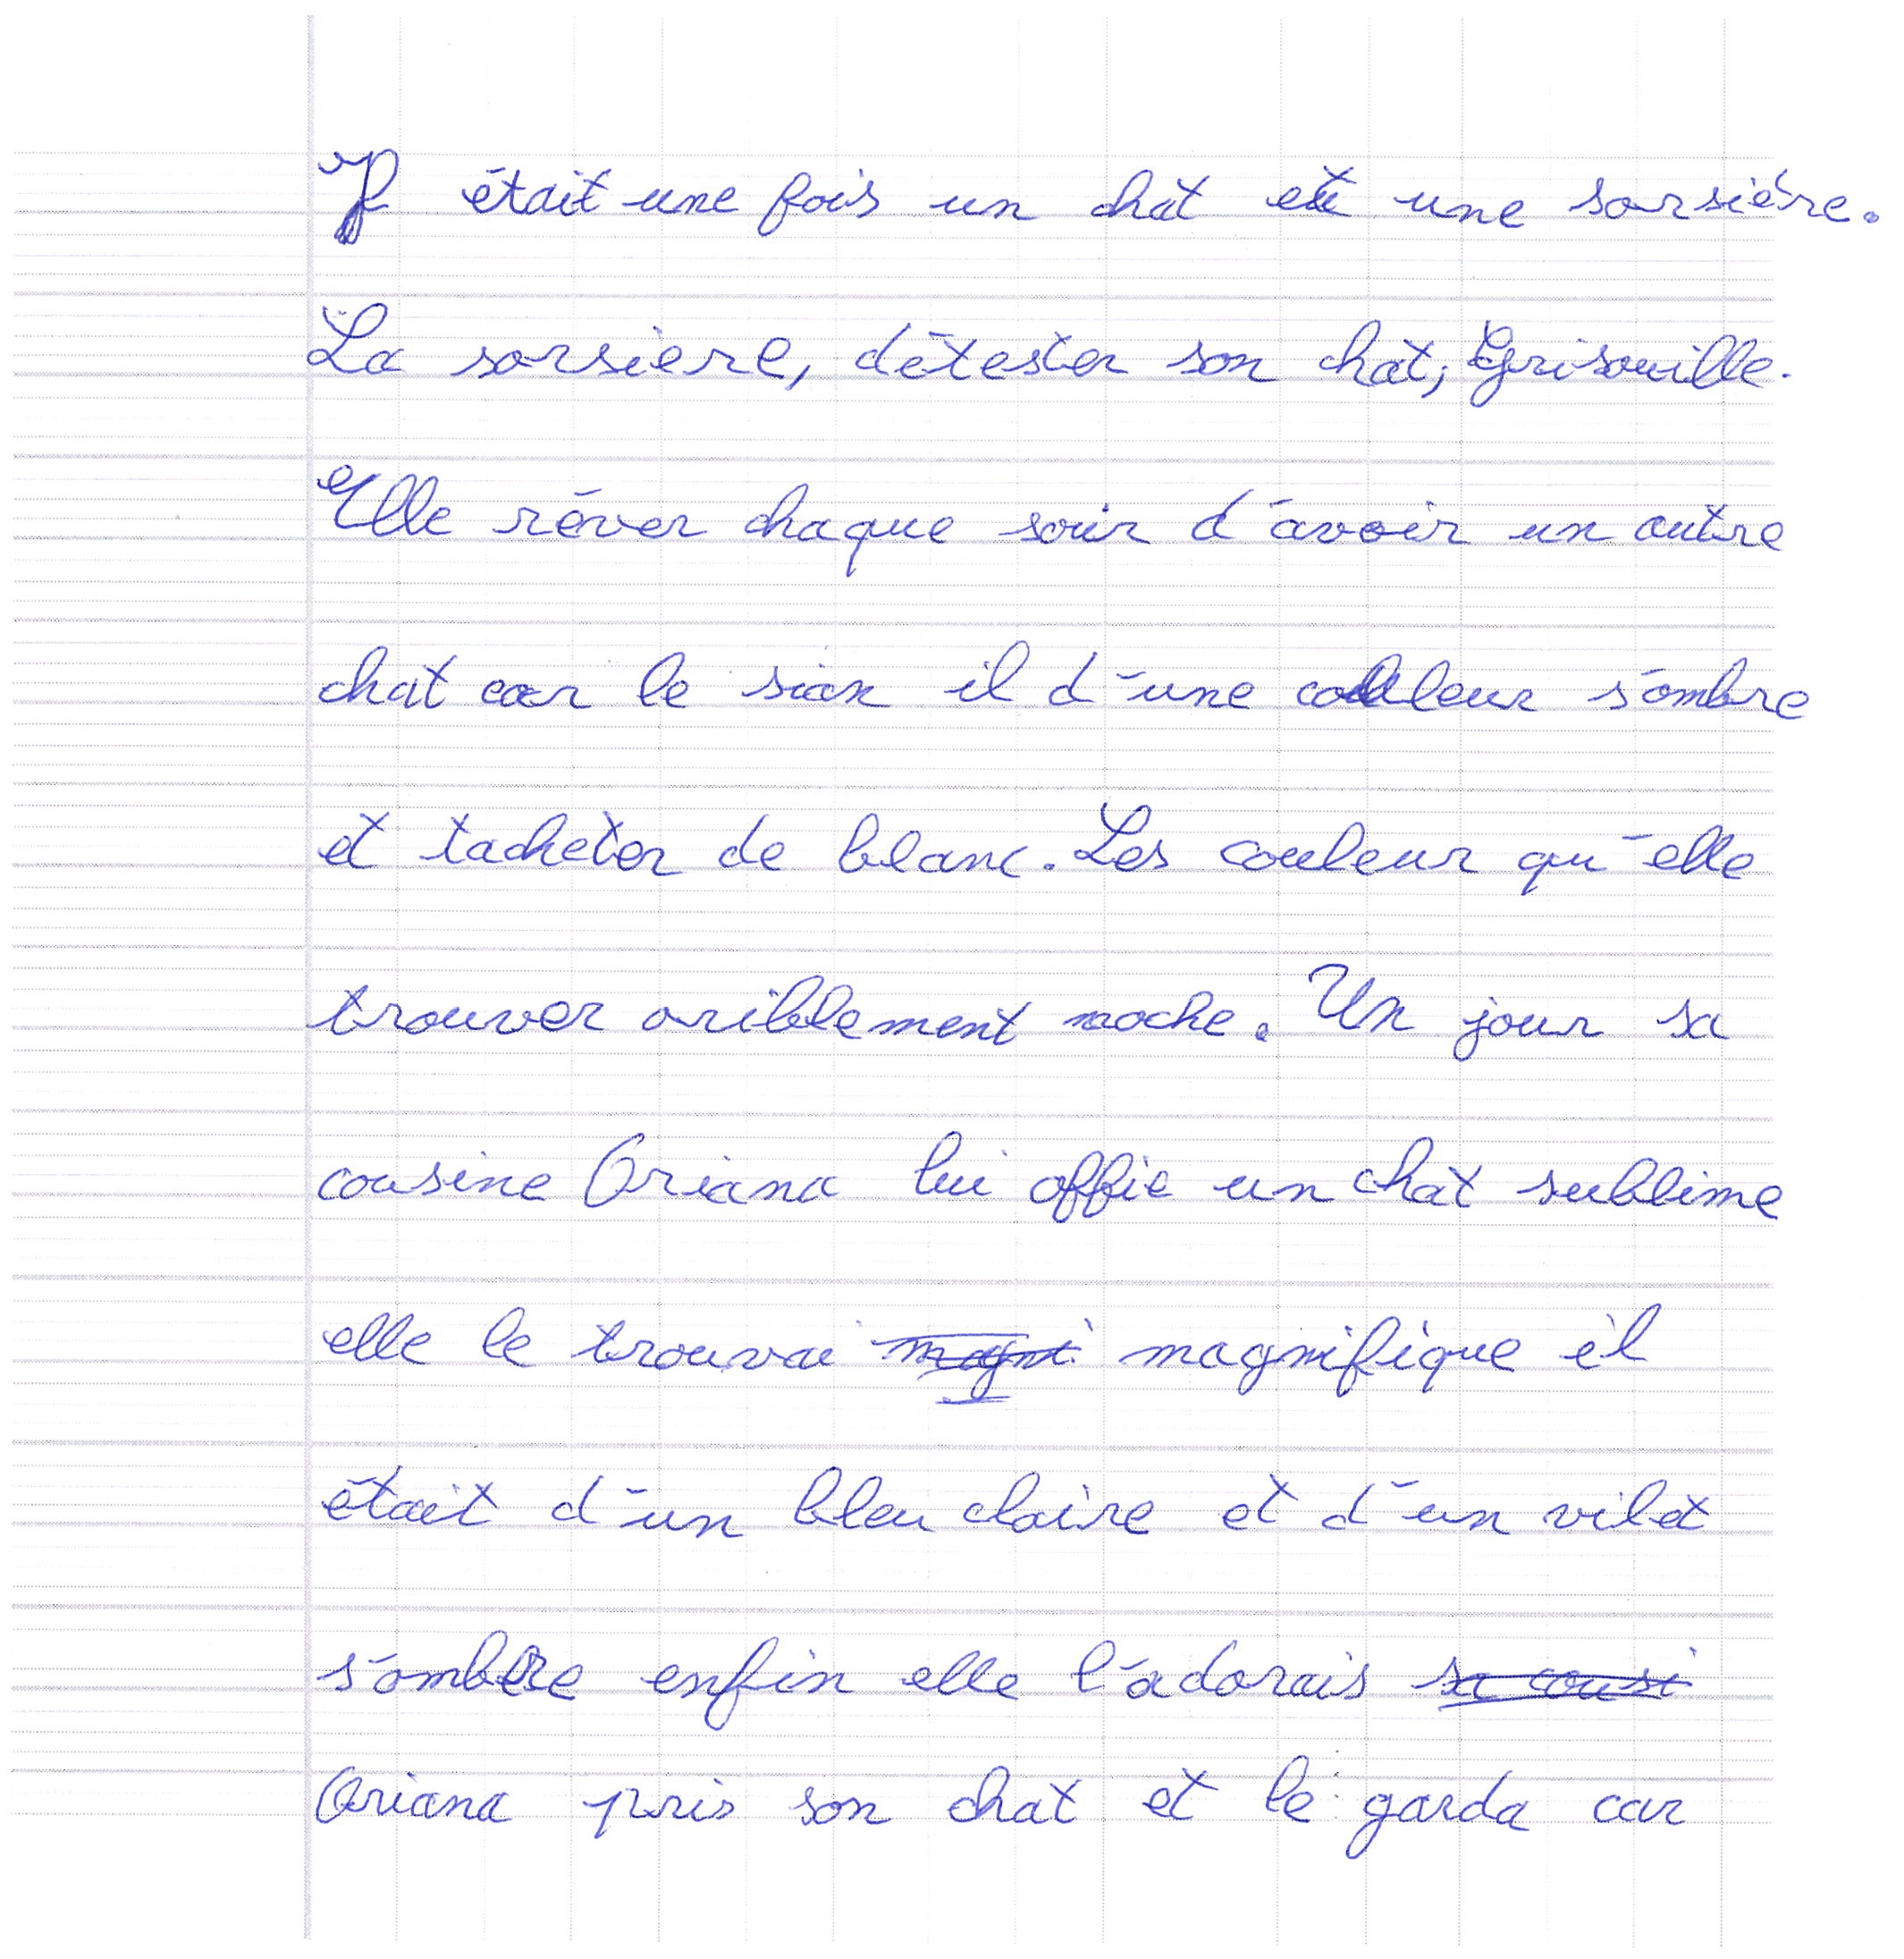 Il était une fois un chat et une sorsière.
La sorsière, détester son chat, Grisouille.
Elle rêver chaque soir d'avoir un autre
chat car le sian il d'une couleur s'ombre
et tacheter de blanc. Les couleur qu'elle
trouver oriblement moche. Un jour sa
cousine Oriana lui offie un chat sublime
elle le trouvai magni magnifique il
était d'un bleu claire et d'un vilet
s'ombre enfin elle l'adorais sa cousi
Oriana pris son chat et le garda car